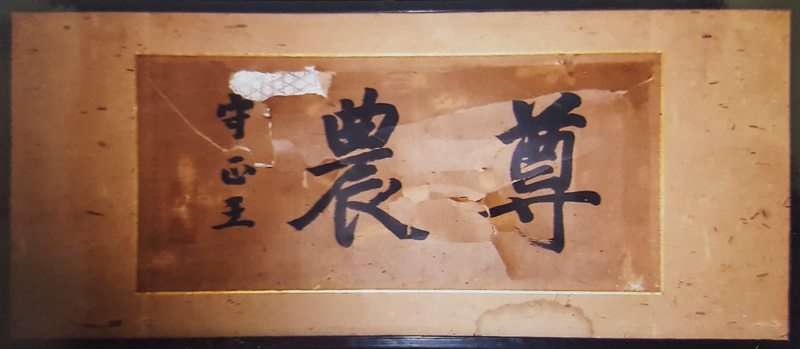 尊農
守正王